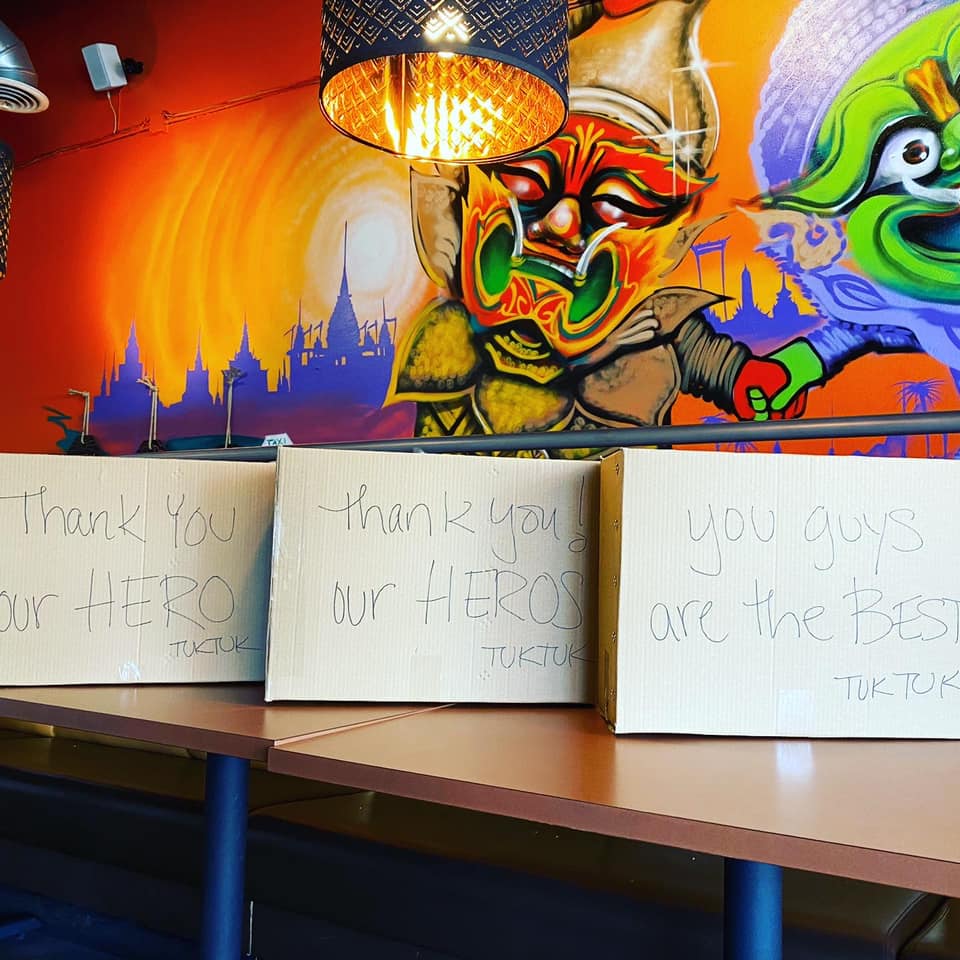 TAXI
Thank You
our HERO
TUKTUK
thank you!
our HEROS
TUKTUK
you guys
are the BEST
TUK TUK